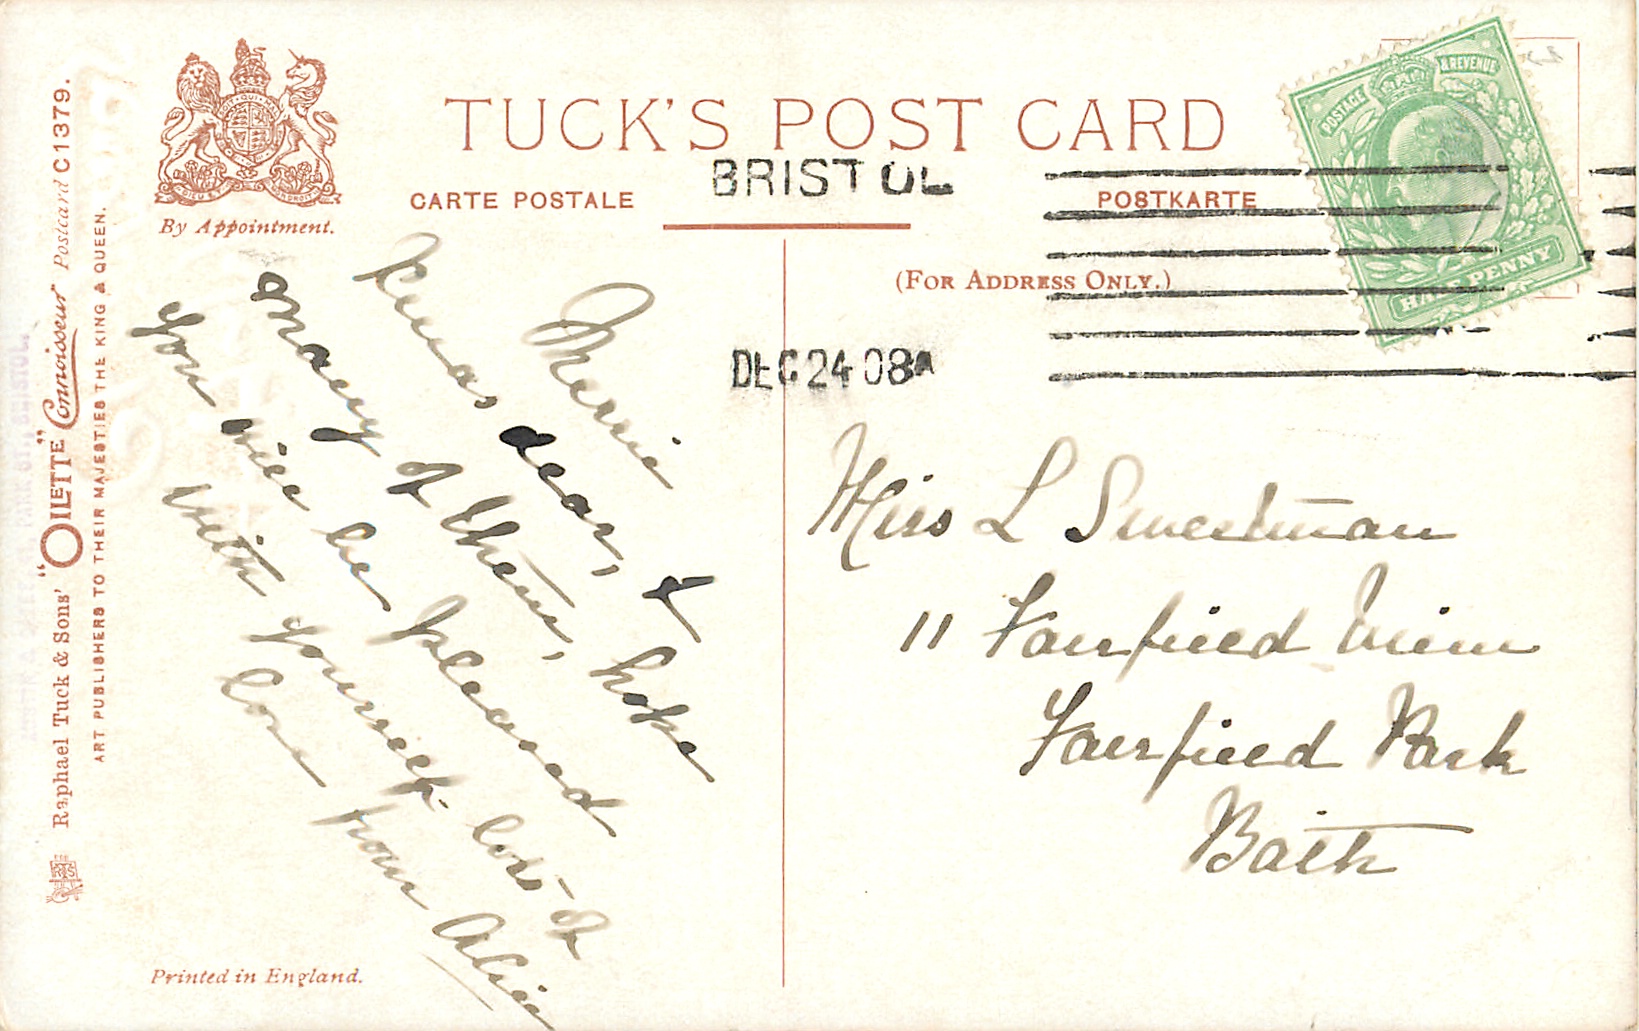 TUCK'S POST CARD
CARTE POSTALE
POSTKARTE
(FOR ADDRESS ONLY.)
By Appointment.
BRISTOL
DEC 24 08
POSTAGE & REVENUE
HALF PENNY
Raphael Tuck & Sons' "OILETTE" Connoisseur Postcard C1379.
ART PUBLISHERS TO THEIR MAJESTIES THE KING & QUEEN.
Merrie
Xmas dear, &
many of them, hope
you will be pleased
with yourself. lots of
love from Alice
Miss L Sweetman
11 Fairfield View
Fairfield Park
Bath
Printed in England.